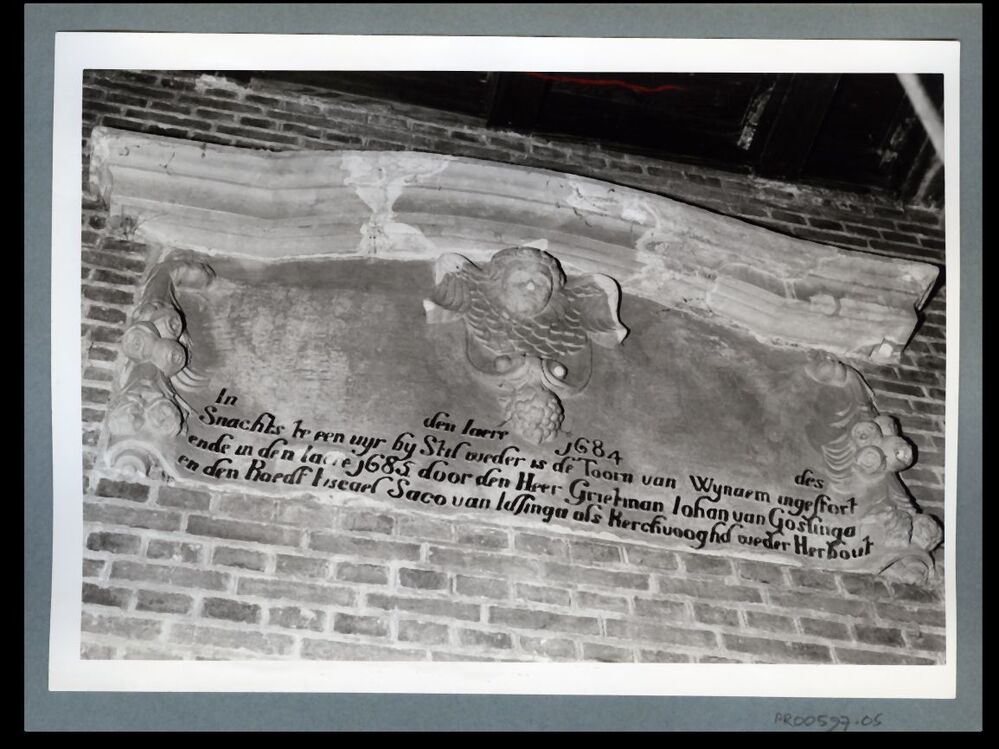 In den Iaere 1684 des
Snachts te een uyr by Stil weder is de Toorn van Wynaem ingestort
ende in den Iaere 1685 door den Heer Grietman Iohan van Goslinga
en den Raedt Fiscael Saco van Idsinga als Kerckvooghd weder Herbout
AR00597-05